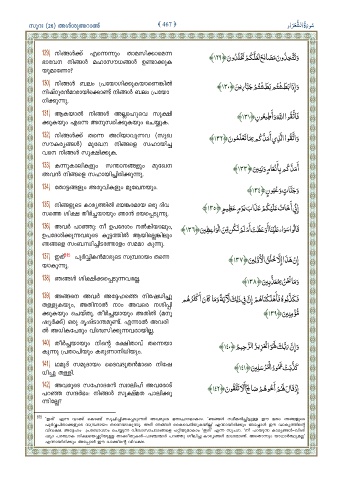 സൂറ (26) അശ്ശുഅറാഅ്
467
سُورَةُ الشُّعَرَاء
129) നിങ്ങൾക്ക് എന്നെന്നും താമസിക്കാമെന്ന
ഭാവേന നിങ്ങൾ മഹാസൗധങ്ങൾ ഉണ്ടാക്കുക
യുമാണോ?
وَتَتَّخِذُونَ مَصَانِعَ لَعَلَّكُمْ تَخْلُدُونَ ﴿١٢٩﴾
130) നിങ്ങൾ ബലം പ്രയോഗിക്കുകയാണെങ്കിൽ
നിഷ്ഠൂരൻമാരായിക്കൊണ്ട് നിങ്ങൾ ബലം പ്രയോ
ഗിക്കുന്നു.
وَإِذَا بَطَشْتُم بَطَشْتُمْ جَبَّارِينَ ﴿١٣٠﴾
131) ആകയാൽ നിങ്ങൾ അല്ലാഹുവെ സൂക്ഷി
ക്കുകയും എന്നെ അനുസരിക്കുകയും ചെയ്യുക.
فَاتَّقُوا اللَّهَ وَأَطِيعُونِ ﴿١٣١﴾
132) നിങ്ങൾക്ക് തന്നെ അറിയാവുന്നവ (സുഖ
സൗകര്യങ്ങൾ) മുഖേന നിങ്ങളെ സഹായിച്ച
വനെ നിങ്ങൾ സൂക്ഷിക്കുക.
وَاتَّقُوا الَّذِي أَمَدَّكُم بِمَا تَعْلَمُونَ ﴿١٣٢﴾
133) കന്നുകാലികളും സന്താനങ്ങളും മുഖേന
അവൻ നിങ്ങളെ സഹായിച്ചിരിക്കുന്നു.
أَمَدَّكُم بِأَنْعَامٍ وَبَنِينَ ﴿١٣٣﴾
134) തോട്ടങ്ങളും അരുവികളും മുഖേനയും.
وَجَنَّاتٍ وَعُيُونٍ ﴿١٣٤﴾
135) നിങ്ങളുടെ കാര്യത്തിൽ ഭയങ്കരമായ ഒരു ദിവ
സത്തെ ശിക്ഷ തീർച്ചയായും ഞാൻ ഭയപ്പെടുന്നു.
إِنِّي أَخَافُ عَلَيْكُمْ عَذَابَ يَوْمٍ عَظِيمٍ ﴿١٣٥﴾
136) അവർ പറഞ്ഞു: നീ ഉപദേശം നൽകിയാലും,
ഉപദേശിക്കുന്നവരുടെ കൂട്ടത്തിൽ ആയില്ലെങ്കിലും
ഞങ്ങളെ സംബന്ധിച്ചിടത്തോളം സമമാ കുന്നു.
قَالُوا سَوَاءٌ عَلَيْنَا أَوَعَظْتَ أَمْ لَمْ تَكُن مِّنَ الْوَاعِظِينَ ﴿١٣٦﴾
137) ഇത് പൂർവ്വികൻമാരുടെ സമ്പ്രദായം തന്നെ
യാകുന്നു.
إِنْ هَٰذَا إِلَّا خُلُقُ الْأَوَّلِينَ ﴿١٣٧﴾
138) ഞങ്ങൾ ശിക്ഷിക്കപ്പെടുന്നവരല്ല.
وَمَا نَحْنُ بِمُعَذَّبِينَ ﴿١٣٨﴾
139) അങ്ങനെ അവർ അദ്ദേഹത്തെ നിഷേധിച്ചു
തള്ളുകയും, അതിനാൽ നാം അവരെ നശിപ്പി
ക്കുകയും ചെയ്തു. തീർച്ചയായും അതിൽ (മനു
ഷ്യർക്ക്) ഒരു ദൃഷ്ടാന്തമുണ്ട്. എന്നാൽ അവരി
ൽ അധികപേരും വിശ്വസിക്കുന്നവരായില്ല.
فَكَذَّبُوهُ فَأَهْلَكْنَاهُمْ إِنَّ فِي ذَٰلِكَ لَآيَةً وَمَا كَانَ أَكْثَرُهُم
مُّؤْمِنِينَ ﴿١٣٩﴾
140) തീർച്ചയായും നിന്റെ രക്ഷിതാവ് തന്നെയാ
കുന്നു പ്രതാപിയും കരുണാനിധിയും.
وَإِنَّ رَبَّكَ لَهُوَ الْعَزِيزُ الرَّحِيمُ ﴿١٤٠﴾
141) ഥമൂദ് സമുദായം ദൈവദൂതൻമാരെ നിഷേ
ധിച്ചു തള്ളി.
كَذَّبَتْ ثَمُودُ الْمُرْسَلِينَ ﴿١٤١﴾
142) അവരുടെ സഹോദരൻ സ്വാലിഹ് അവരോട്
പറഞ്ഞ സന്ദർഭം: നിങ്ങൾ സൂക്ഷ്മത പാലിക്കു
ന്നില്ലേ?
إِذْ قَالَ لَهُمْ أَخُوهُمْ صَالِحٌ أَلَا تَتَّقُونَ ﴿١٤٢﴾